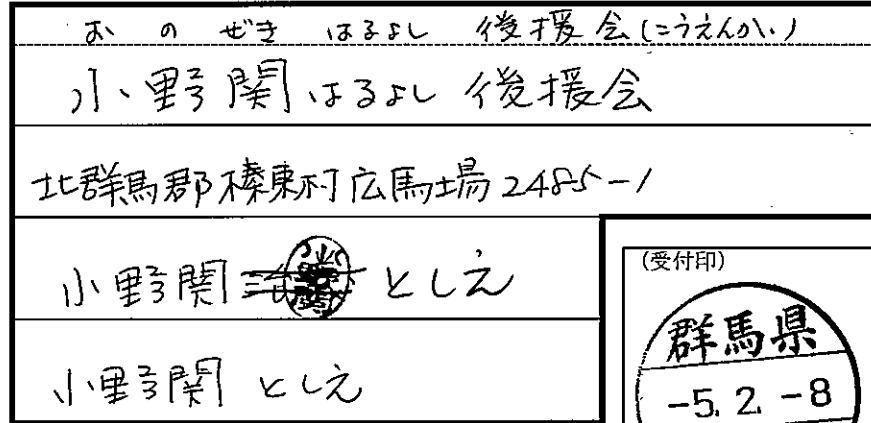 おのぜき はるよし 後援会(こうえんかい)
小野関はるよし後援会
北群馬郡榛東村広馬場2485-1
小野関 としえ
小野関 としえ
(受付印)
群馬県
-5. 2. -8